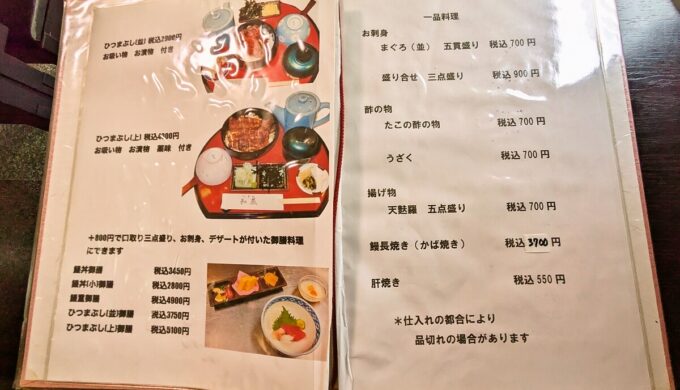 ひつまぶし(並) 税込2900円
お吸い物 お漬物 付き
ひつまぶし(上) 税込4300円
お吸い物 お漬物 薬味 付き
+800円で口取り三点盛り、お刺身、デザートが付いた御膳料理
にできます
鰻丼御膳 税込3450円
鰻丼(小)御膳 税込2800円
鰻重御膳 税込4900円
ひつまぶし(並)御膳 税込3750円
ひつまぶし(上)御膳 税込5100円
一品料理
お刺身
まぐろ(並) 五貫盛り 税込 700円
盛り合せ 三点盛り 税込 900円
酢の物
たこの酢の物 税込 700円
うざく 税込 700円
揚げ物
天麩羅 五点盛り 税込 700円
鰻長焼き(かば焼き) 税込 3700円
肝焼き 税込 550円
*仕入れの都合により
品切れの場合があります